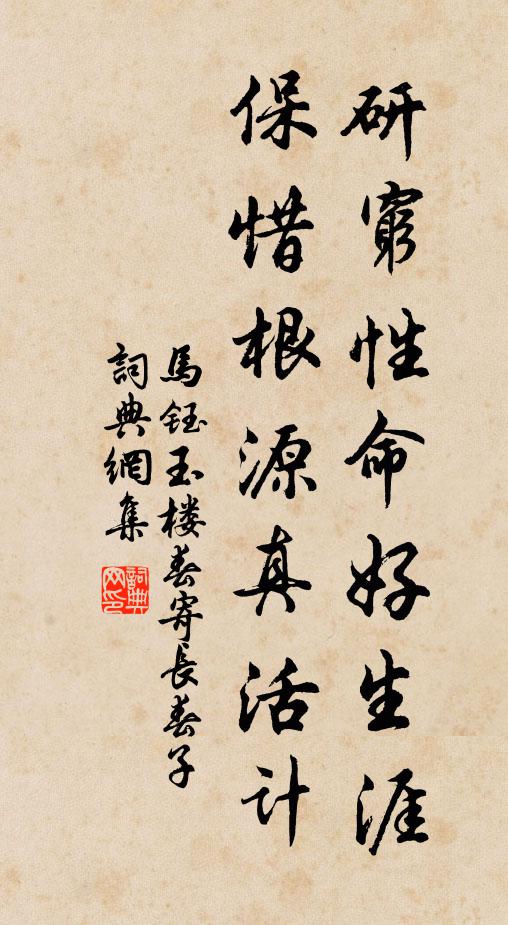 研窮性命好生涯
保惜根源真活計
馬鈺玉楼春寄長春子
詞典網集
詞典网印